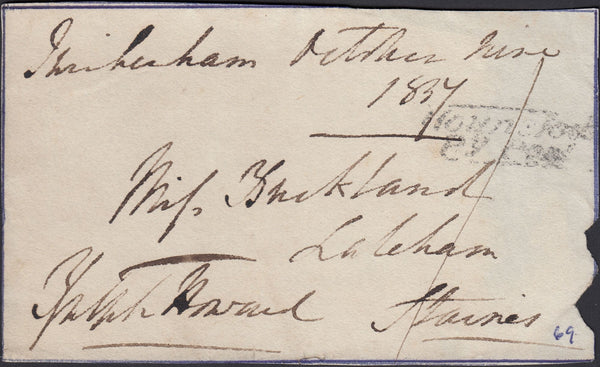 Twickenham October nine
1837
Hounslow
Miſs Buckland
Laleham
Ralph Howard Staines
69